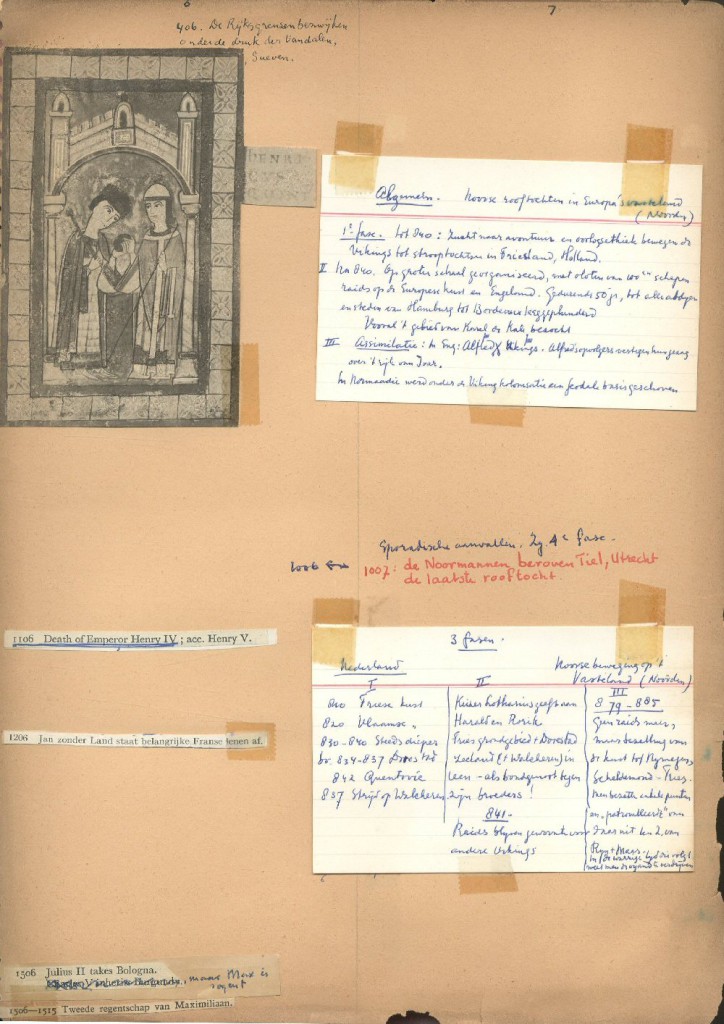 6
7
406. De Rijksgrenzen bezwijken
onder de druk der Vandalen,
Sueven.
Algemeen. Noorse rooftochten in Europa's vasteland
(Noorden)
1e fase. tot 840: Zucht naar avontuur en oorlogsethiek bewegen de
Vikings tot strooptochten in Friesland, Holland.
II Na 840. Op grote schaal georganiseerd, met vloten van 100en schepen
raids op de Europese kust en Engeland. Gedurende 50 jr, tot alle abdijen
en steden van Hamburg tot Bordeaux leeggeplunderd
Vooral 't gebied van Karel de Kale bezocht
III Assimilatie: In Eng: Alfred X Vikings. Alfreds opvolgers
over 't rijk van
In Normandie werd onder de Vikingkolonisatie een feodale basis geschoven
Sporadische aanvallen. Zg 4e fase.
1006 en 1007: de Noormannen beroven Tiel, Utrecht
de laatste rooftocht.
1106 Death of Emperor Henry IV; acc. Henry V.
3 fasen.
Nederland
Noorse beweging op 't
Vasteland (Noorden)
I
II
III
810 Friese kust
820 Vlaamse "
830-840 Steeds dieper
bv. 834-837 Dorestad
842 Quentovic
837 Strijd op Walcheren
Keizer Lotharius geeft aan
Harald en Rorik
Fries grondgebied + Dorestad
Zeeland (+ Walcheren) in
leen - als bondgenoot tegen
zijn broeders!
841-
Raids blijven gewoonte voor
andere Vikings
879-885
Geen raids meer,
meer bezetting van
de kust tot Nijmegen
Scheldemond - Fries.
Men bezette enkele punten
en "patrouilleerde" van
daar uit
Rijn + Maas.
1206 Jan zonder Land staat belangrijke Franse lenen af.
1506 Julius II takes Bologna.
, maar Max is
regent
1506—1515 Tweede regentschap van Maximiliaan.